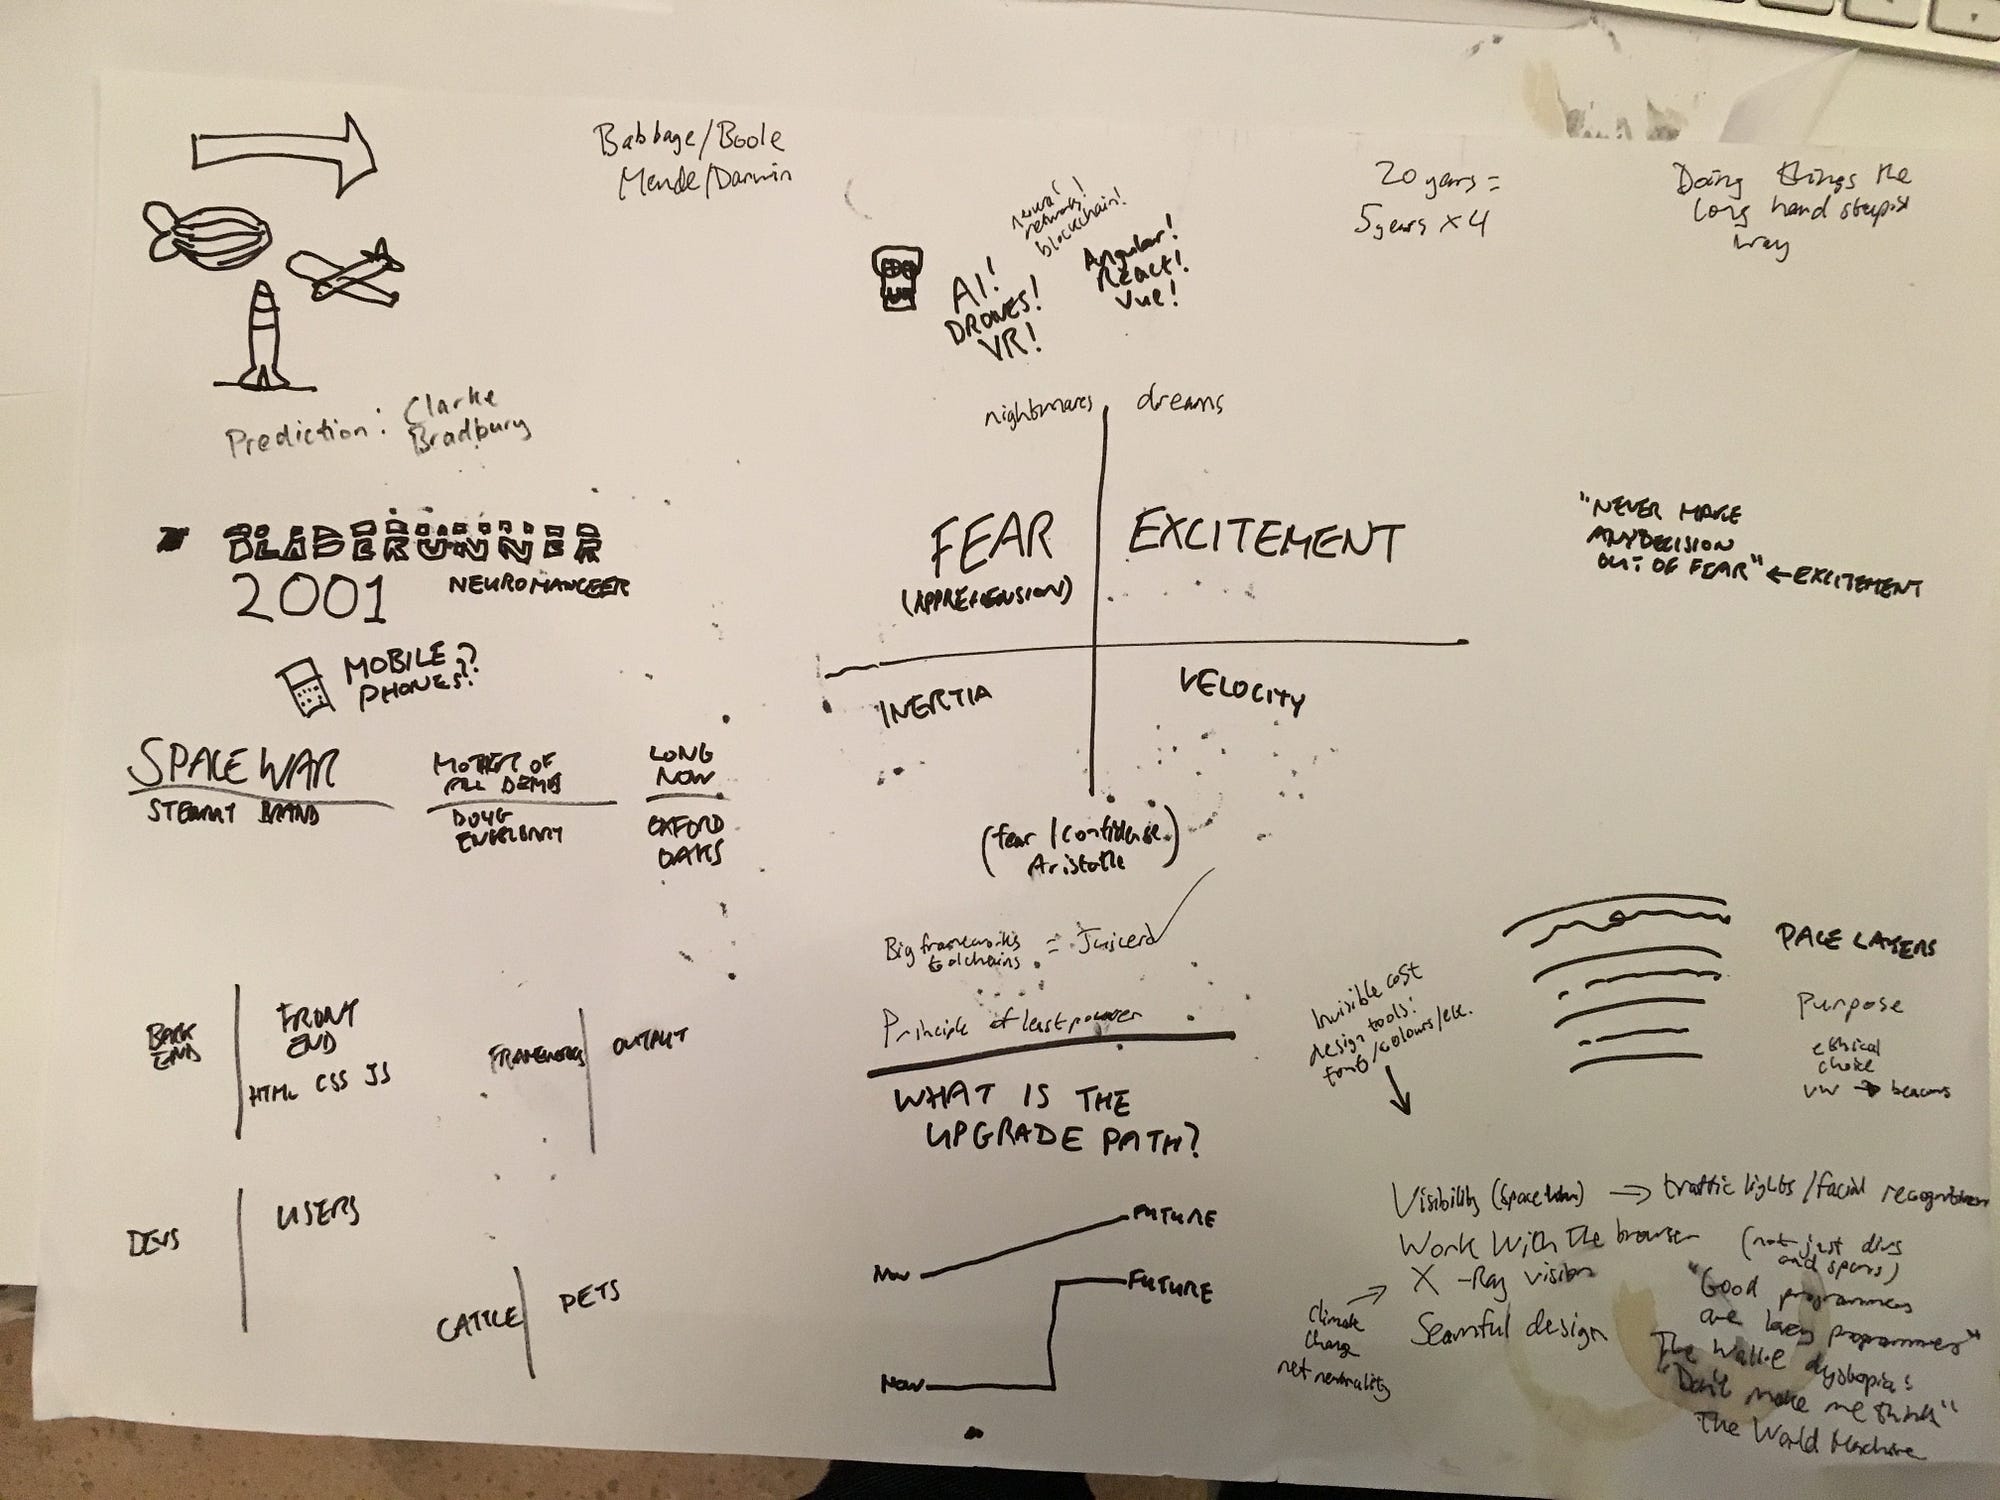 Babbage/Boole
Mende/Darwin
20 years =
5 years x 4
Doing things the
long hand stupist
way
neural
networks!
blockchain!
AI!
DRONES!
VR!
Angular!
React!
Vue!
Prediction: Clarke
Bradbury
nightmares dreams
BLADERUNNER
2001 NEUROMANCEER
MOBILE
PHONES??
FEAR
(APPREHENSION)
EXCITEMENT
INERTIA
VELOCITY
"NEVER MAKE
ANY DECISION
OUT OF FEAR" ← EXCITEMENT
SPACE WAR
STEWART BRAND
MOTHER OF
ALL DEMOS
DOUG
ENGELBART
LONG
NOW
OXFORD
OAKS
(fear / confidence
Aristotle)
Big frameworks
toolchains = Juicero
Principle of least power
WHAT IS THE
UPGRADE PATH?
BACK
END
FRONT
END
HTML CSS JS
FRAMEWORKS
OUTPUT
DEVS
USERS
CATTLE
PETS
NOW
FUTURE
NOW
FUTURE
Invisible cost
design tools:
fonts/colours/etc.
PACE LAYERS
Purpose
ethical
choice
VW → beacons
Visibility → traffic lights / facial recognition
Work with the browser (not just divs
and spans)
X-Ray vision
Seamful design
Climate
Change
net neutrality
"Good programmers
are lazy programmers"
The Wall-E dystopia:
"Don't make me think"
The World Machine